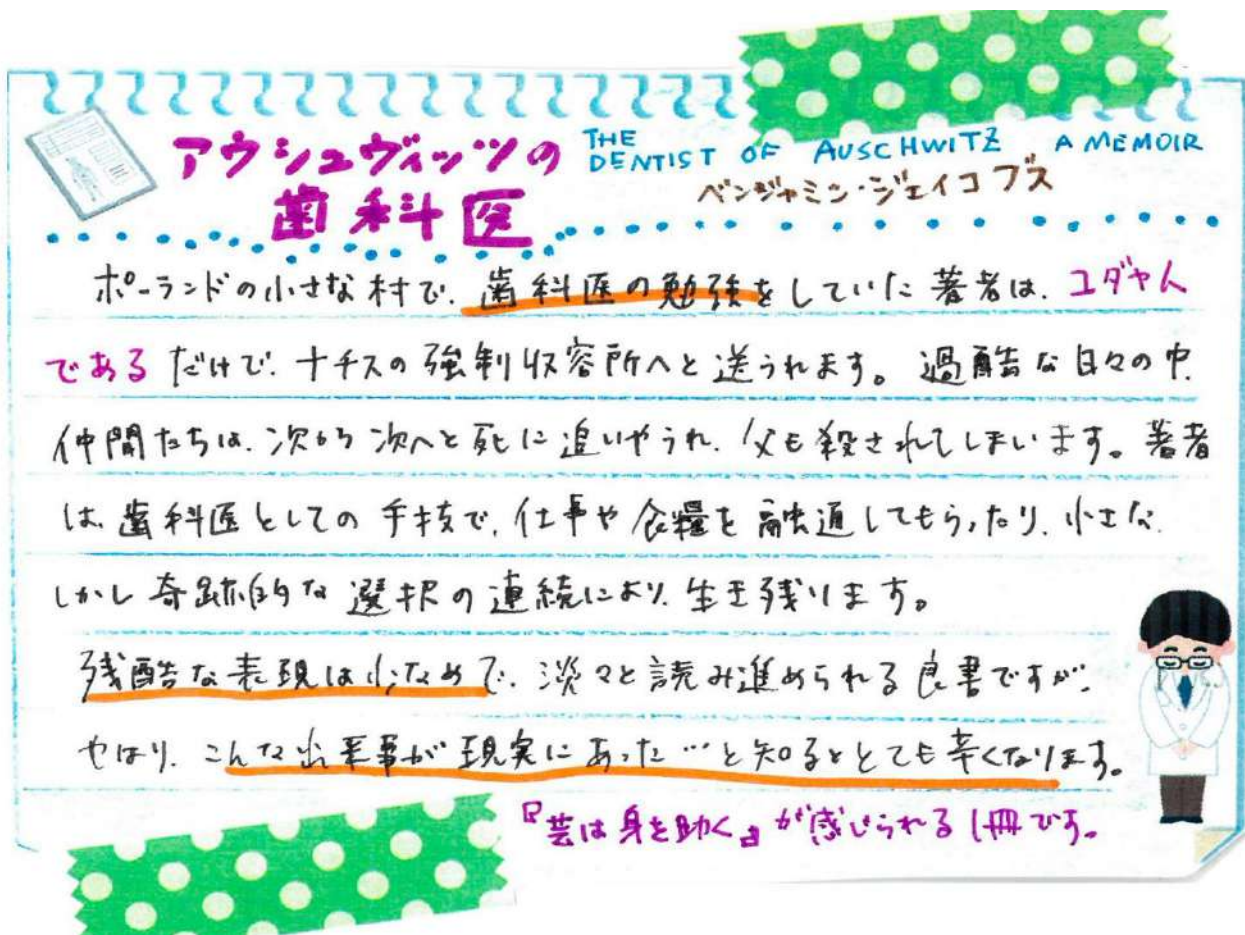 アウシュヴィッツの
歯科医
THE
DENTIST OF AUSCHWITZ A MEMOIR
ベンジャミン・ジェイコブス
ポーランドの小さな村で、歯科医の勉強をしていた著者は、ユダヤ人
であるだけで、ナチスの強制収容所へと送られます。過酷な日々の中、
仲間たちは、次から次へと死に追いやられ、父も殺されてしまいます。著者
は、歯科医としての手技で、仕事や食糧を融通してもらったり、小さな、
しかし奇跡的な選択の連続により、生き残ります。
残酷な表現は少なめで、淡々と読み進められる良書ですが、
やはり、こんな出来事が現実にあった…と知るととても辛くなります。
『芸は身を助く』が感じられる1冊です。